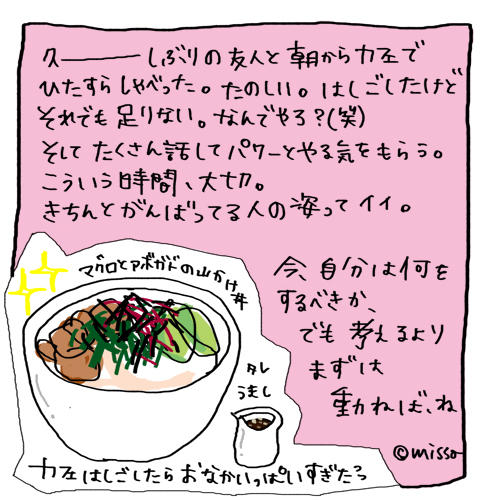 久———しぶりの友人と朝からカフェで
ひたすらしゃべった。たのしい。はしごしたけど
それでも足りない。なんでやろ?(笑)
そしてたくさん話してパワーとやる気をもらう。
こういう時間、大切。
きちんとがんばってる人の姿ってイイ。
今、自分は何を
するべきか、
でも考えるより
まずは
動れば、ね
©misso
マグロとアボガドの山かけ丼
タレ
うまし
カフェはしごしたらおなかいっぱいすぎたっ